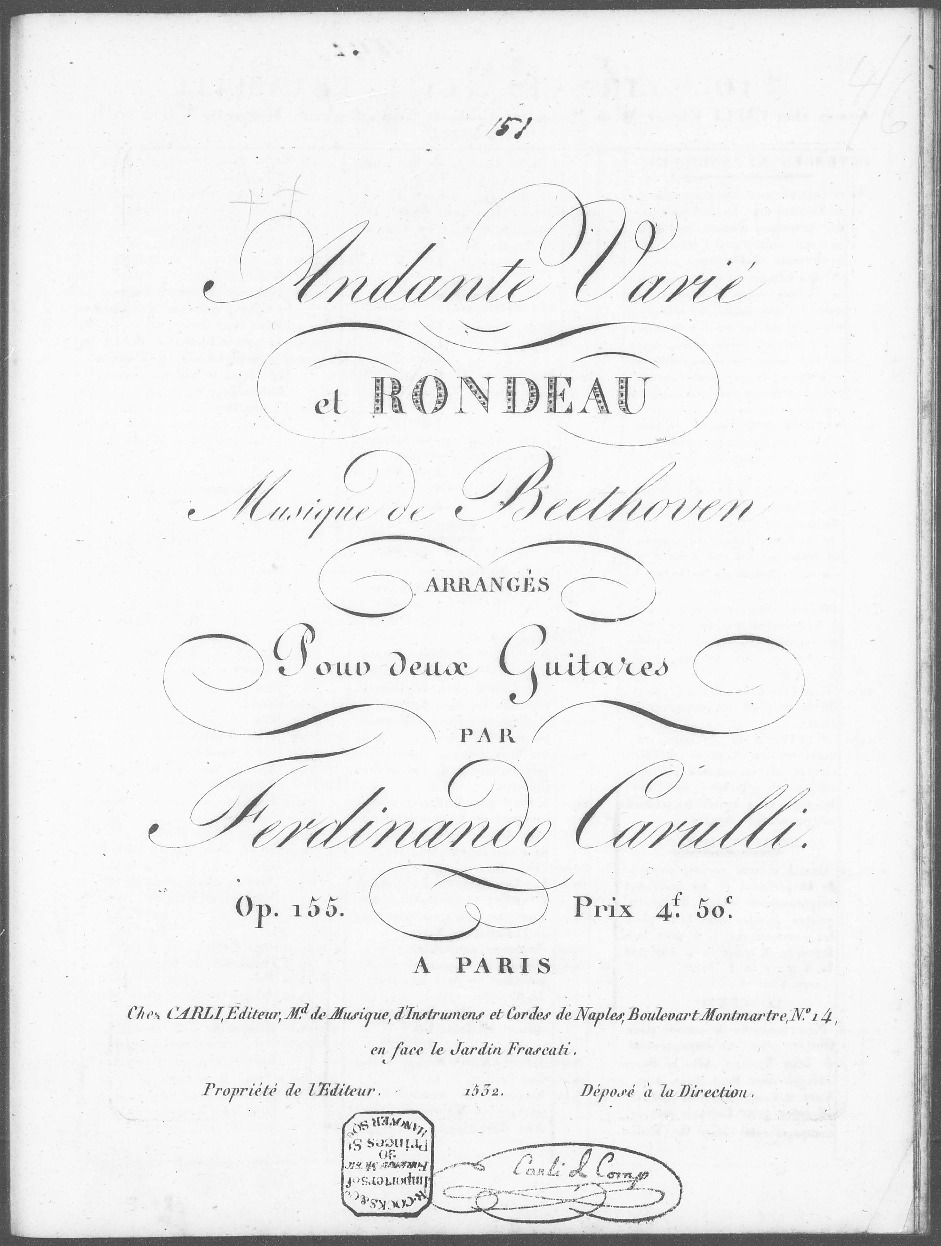 151
Andante Varié
et RONDEAU
Musique de Beethoven
ARRANGÉS
Pour deux Guitares
PAR
Ferdinando Carulli.
Op. 155. Prix 4f. 50c.
A PARIS
Chez CARLI, Éditeur, Md. de Musique, d'Instrumens et Cordes de Naples, Boulevart Montmartre, No. 14,
en face le Jardin Frascati.
Propriété de l'Editeur. 1532. Déposé à la Direction.
R. COCKS & Co.
Importers of
20
Princes St.
HANOVER SQe.
Carli & Comp